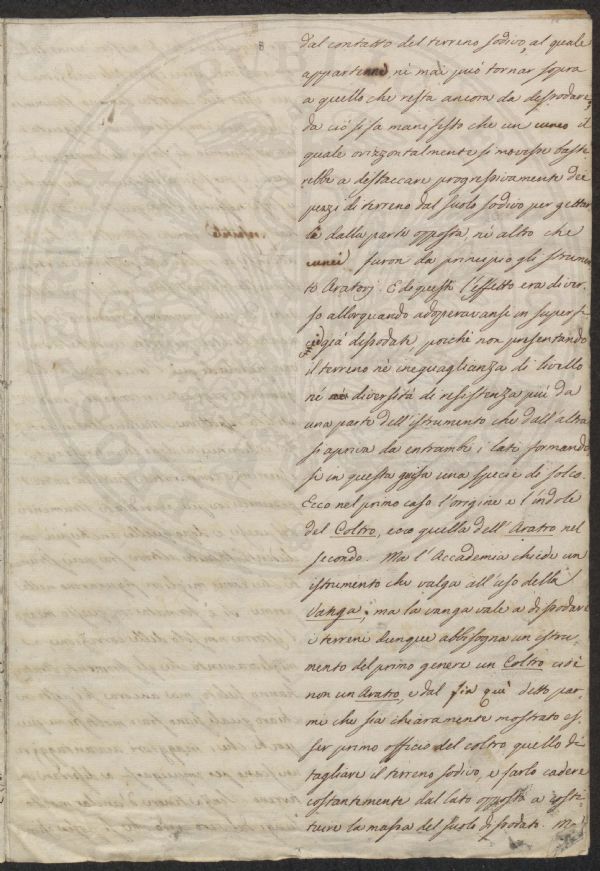 dal contatto del terreno sodivo, al quale
appartenne ne mai può tornar sopra
a quello che resta ancora da dissodare,
da ciò si fa manifesto che un cuneo il
quale orizzontalmente si movesse baste
rebbe a distaccare progressivamente dei
pezzi di terreno dal suolo sodivo per gettar
li dalla parte opposta, nè altro che
cunei furon da principio gli strumen
ti Aratorj. E di questi l'effetto era diver-
so allorquando adoperavansi in superfi
cie già dissodate, poichè non presentando
il terreno nè ineguaglianza di livello
nè diversità di resistenza più da
una parte dell'istrumento che dall'altra
si apriva da entrambi i lati formando
si in questa guisa una specie di solco.
Ecco nel primo caso l'origine e l'indole
del Coltro, ecco quella dell'Aratro nel
secondo. Ma l'Accademia chiede un
istrumento che valga all'uso della
Vanga; ma la vanga vale a dissodare
i terreni dunque abbisogna un istru
mento del primo genere un Coltro cioè
non un Aratro, e dal fin quì detto par
mi che sia chiaramente mostrato es
ser primo officio del coltro quello di
tagliare il terreno sodivo, e farlo cadere
costantemente dal lato opposto a costi
tuire la massa del suolo dissodato. Ma